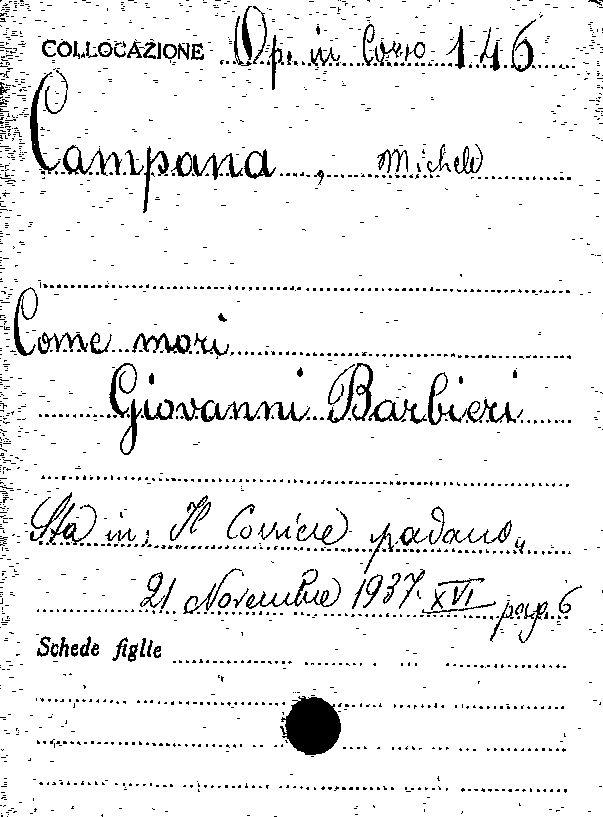 COLLOCAZIONE Op. in Corso 146
Campana, Michele
Come morì
Giovanni Barbieri
Sta in: Il Corriere padano„
21 Novembre 1937. XVI pag. 6
Schede figlie